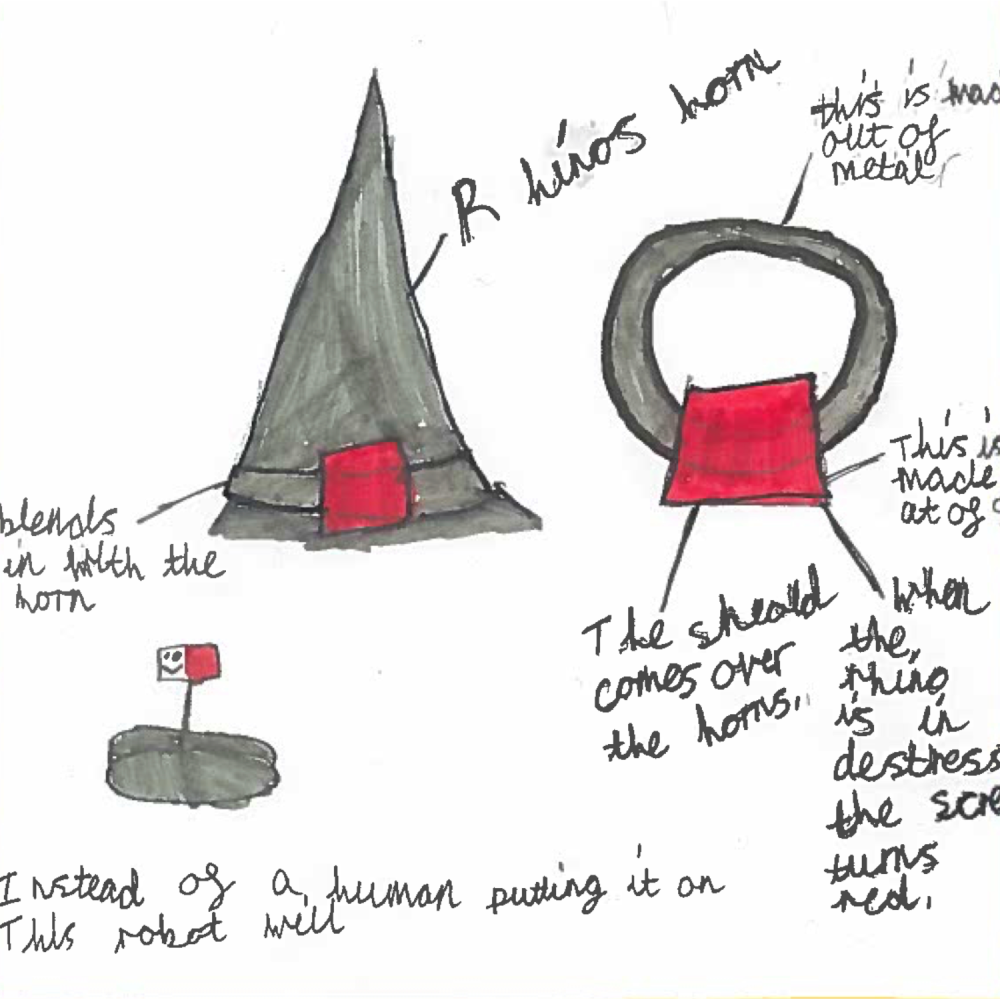 Rhinos horn
this is
out of
metal
blends
in with the
horn
This is
made
at of
The sheald
comes over
the horns.
when
the,
rhino
is in
destress
the
turns
red.
Instead of a human putting it on
This robot will